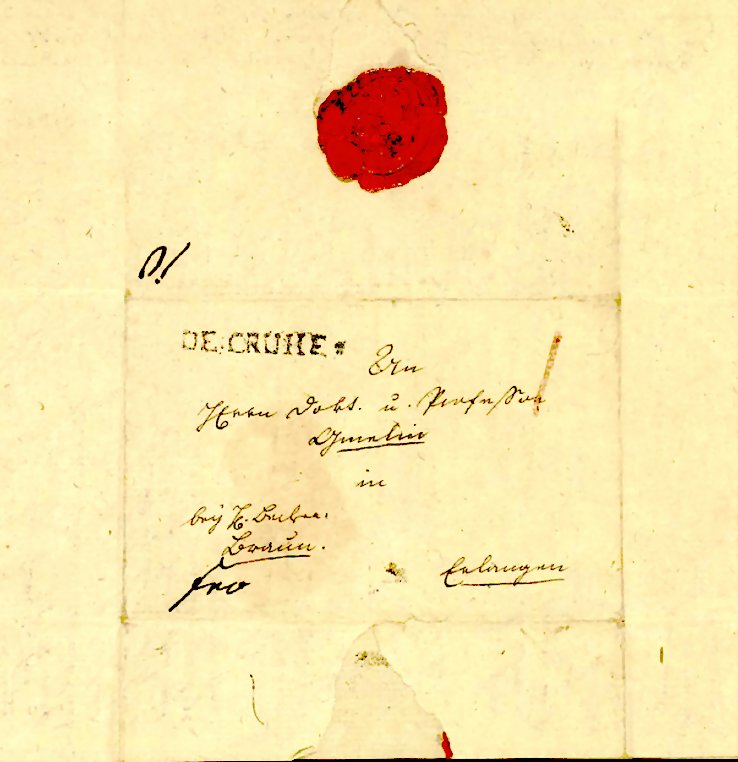 DE.CRUHE*
An
Herrn Dokt. u. Professor
Gmelin
in
bey H.
Braun.
fro
Erlangen